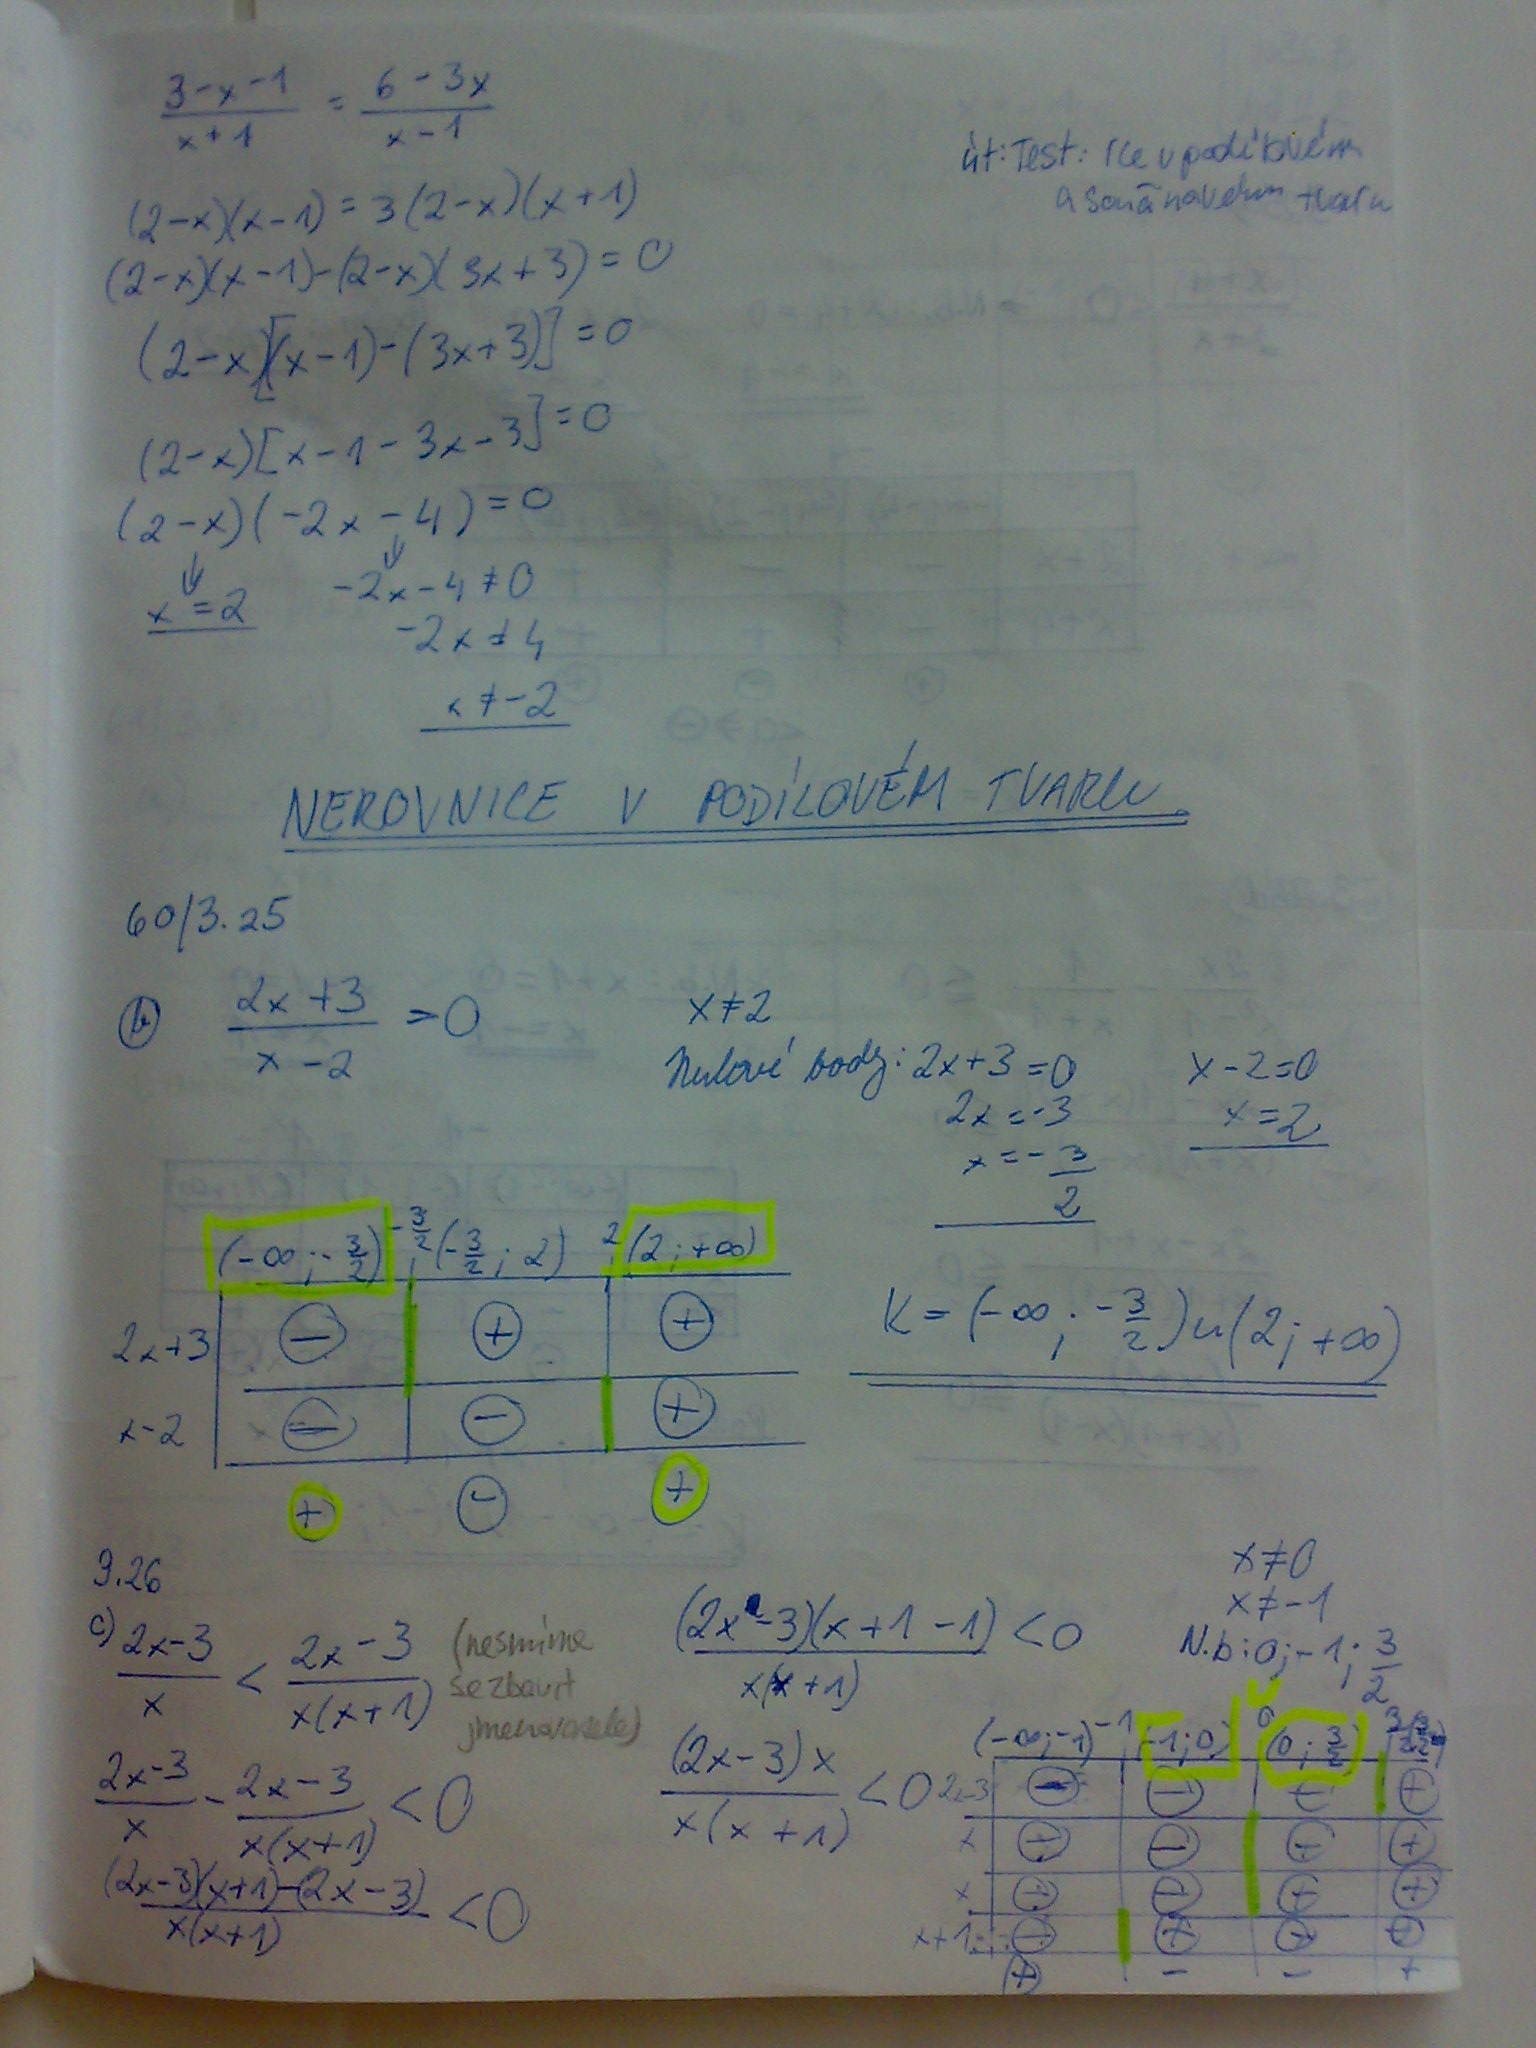 (3-x-1)/(x+1) = (6-3x)/(x-1)
út: Test: rce v podílovém
a součinovém tvaru
(2-x)(x-1) = 3(2-x)(x+1)
(2-x)(x-1)-(2-x)(3x+3) = 0
(2-x)[(x-1)-(3x+3)] = 0
(2-x)[x-1-3x-3] = 0
(2-x)(-2x-4) = 0
x = 2
-2x-4 ≠ 0
-2x ≠ 4
x ≠ -2
NEROVNICE V PODÍLOVÉM TVARU
60/3.25
b) (2x+3)/(x-2) > 0
x ≠ 2
Nulové body: 2x+3 = 0
2x = -3
x = -3/2
x-2 = 0
x = 2
(-∞; -3/2) -3/2 (-3/2; 2) 2 (2; +∞)
2x+3 - + +
x-2 - - +
+ - +
K = (-∞; -3/2) ∪ (2; +∞)
3.26
c) (2x-3)/x < (2x-3)/(x(x+1))
(nesmíme
se zbavit
jmenovatele)
(2x-3)/x - (2x-3)/(x(x+1)) < 0
((2x-3)(x+1)-(2x-3))/(x(x+1)) < 0
((2x-3)(x+1-1))/(x(x+1)) < 0
((2x-3)x)/(x(x+1)) < 0
x ≠ 0
x ≠ -1
N.b: 0; -1; 3/2
(-∞; -1) -1 (-1; 0) 0 (0; 3/2) 3/2
2x-3 - -
x
x
x+1
+ - - +